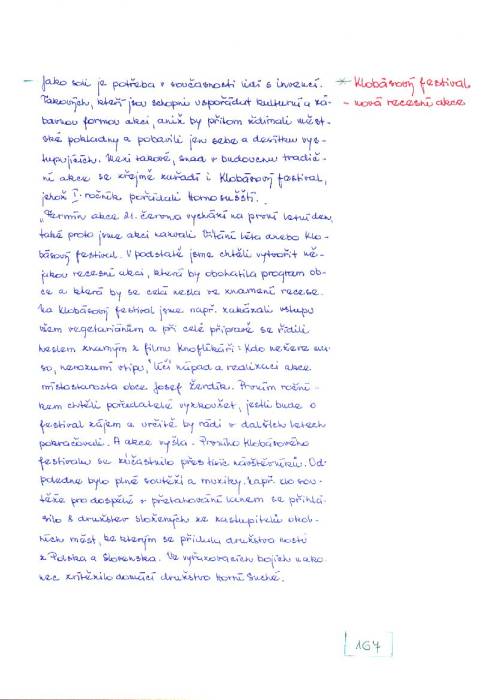 - Jako soli je potřeba v současnosti lidí s invencí.
Takových, kteří jsou schopni uspořádat kulturní a zá-
bavnou formou akci, aniž by přitom ždímali měst-
ské pokladny a pobavili jen sebe a desítku vys-
tupujících. Mezi takové, snad v budoucnu tradič-
ní akce se zřejmě zařadí i Klobásový festival,
jehož I. ročník pořádali Hornosušští.
"Termín akce 21. června vychází na první letní den,
také proto jsme akci nazvali Vítání léta anebo Klo-
básový festival. V podstatě jsme chtěli vytvořit ně-
jakou recesní akci, která by obohatila program ob-
ce a která by se celá nesla ve znamení recese.
Na Klobásový festival jsme např. zakázali vstupu
všem vegetariánům a při celé přípravě se řídili
heslem známým z filmu Knoflíkáři: Kdo nežere ma-
so, nerozumí vtipu," líčí nápad a realizaci akce
místostarosta obce Josef Žerdík. Prvním roční-
kem chtěli pořadatelé vyzkoušet, jestli bude o
festival zájem a určitě by rádi v dalších letech
pokračovali. A akce vyšla. Prvního Klobásového
festivalu se zúčastnilo přes tisíc návštěvníků. Od-
poledne bylo plné soutěží a muziky. Např. do sou-
těže pro dospělé v přetahování lanem se přihlá-
silo 8 družstev složených ze zastupitelů okol-
ních měst, ke kterým se přidala družstva hostí
z Polska a Slovenska. Ve vyřazovacích bojích nako-
nec zvítězilo domácí družstvo Horní Suché.
* Klobásový festival
- nová recesní akce
167